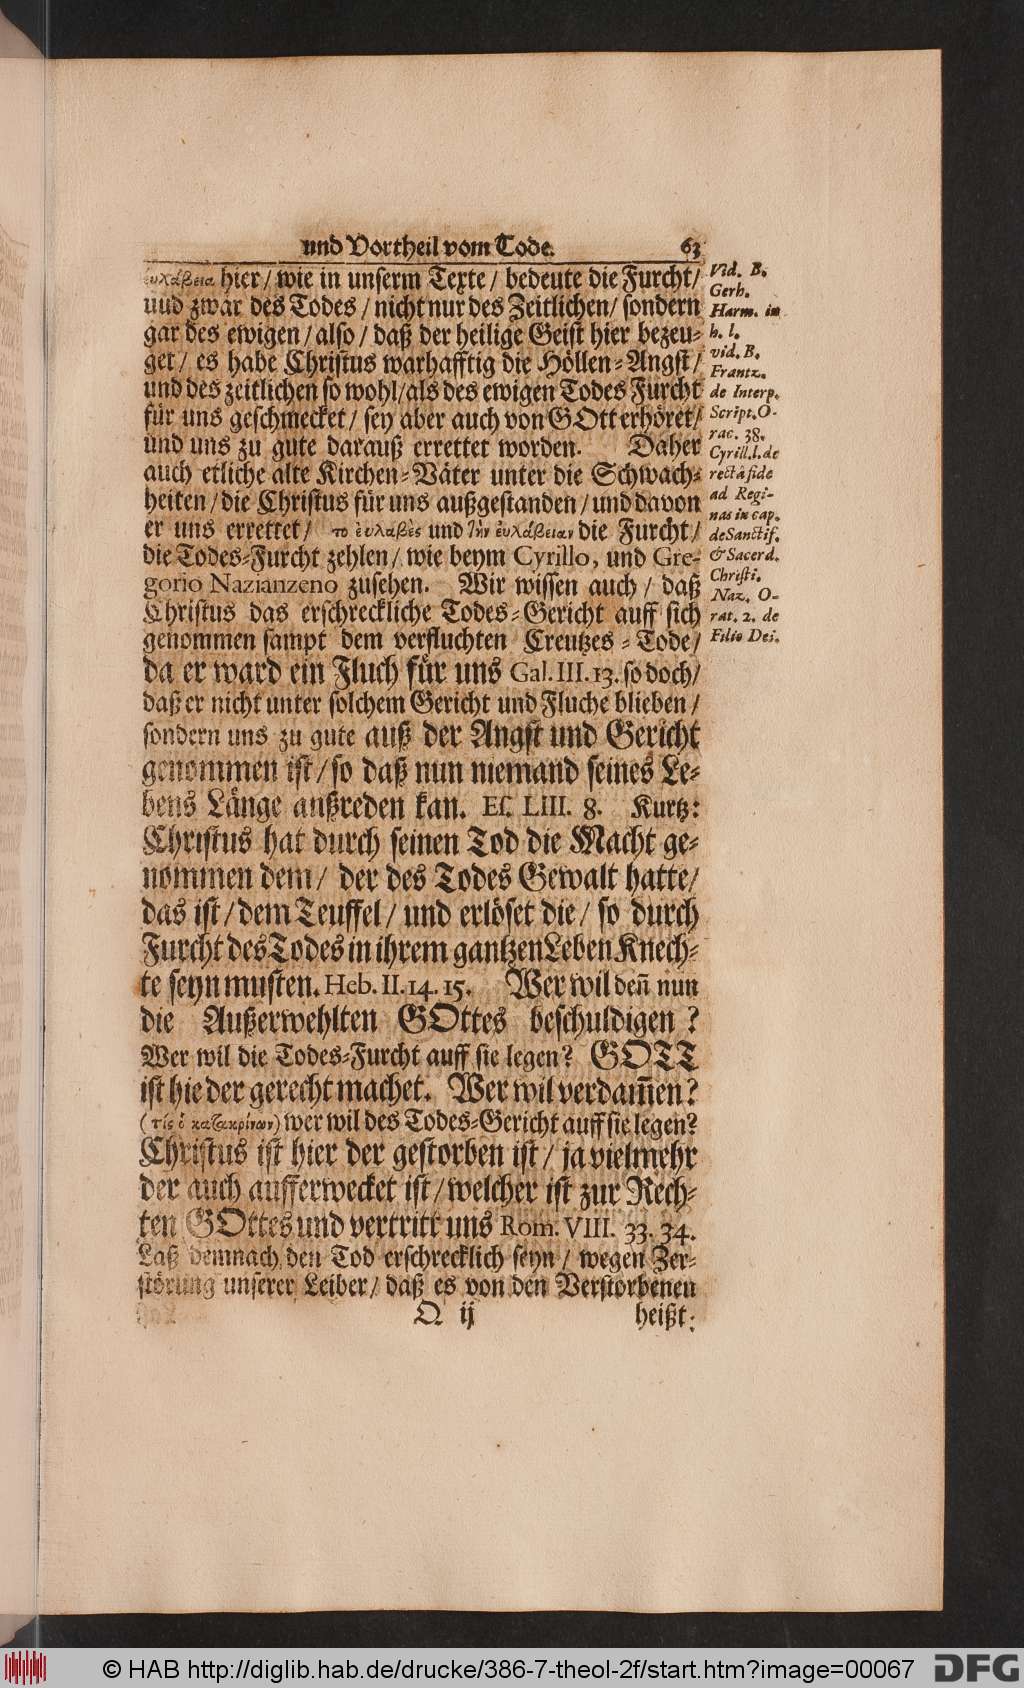 und Vortheil vom Tode. 63
εὐλάβεια hier / wie in unserm Texte / bedeute die Furcht /
und zwar des Todes / nicht nur des Zeitlichen / sondern
gar des ewigen / also / daß der heilige Geist hier bezeu-
get / es habe Christus warhafftig die Höllen-Angst /
und des zeitlichen so wohl / als des ewigen Todes Furcht
für uns geschmecket / sey aber auch von GOtt erhöret /
und uns zu gute darauß errettet worden. Daher
auch etliche alte Kirchen-Väter unter die Schwach-
heiten / die Christus für uns außgestanden / und davon
er uns errettet / το ἐυλαβὲς und τὴν ἐυλάβειαν die Furcht /
die Todes-Furcht zehlen / wie beym Cyrillo, und Gre-
gorio Nazianzeno zusehen. Wir wissen auch / daß
Christus das erschreckliche Todes-Gericht auff sich
genommen sampt dem verfluchten Creutzes-Tode /
da er ward ein Fluch für uns Gal. III. 13. so doch /
daß er nicht unter solchem Gericht und Fluche blieben /
sondern uns zu gute auß der Angst und Gericht
genommen ist / so daß nun niemand seines Le-
bens Länge außreden kan. Es. LIII. 8. Kurtz:
Christus hat durch seinen Tod die Macht ge-
nommen dem / der des Todes Gewalt hatte /
das ist / dem Teuffel / und erlöset die / so durch
Furcht des Todes in ihrem gantzen Leben Knech-
te seyn musten. Heb. II. 14. 15. Wer wil deñ nun
die Außerwehlten GOttes beschuldigen?
Wer wil die Todes-Furcht auff sie legen? GOTT
ist hie der gerecht machet. Wer wil verdam̃en?
(τίς ὁ κατακρίνων) wer wil des Todes-Gericht auff sie legen?
Christus ist hier der gestorben ist / ja vielmehr
der auch aufferwecket ist / welcher ist zur Rech-
ten GOttes und vertritt uns Rom. VIII. 33. 34.
Laß demnach den Tod erschrecklich seyn / wegen Zer-
störung unserer Leiber / daß es von den Verstorbenen
O ij heißt:
Vid. B.
Gerh.
Harm. in
h. l.
vid. B.
Frantz.
de Interp.
Script. O-
rac. 38.
Cyrill. l. de
rectâ fide
ad Regi-
nas in cap.
de Sanctif.
& Sacerd.
Christi.
Naz. O-
rat. 2. de
Filio Dei.
© HAB http://diglib.hab.de/drucke/386-7-theol-2f/start.htm?image=00067 DFG